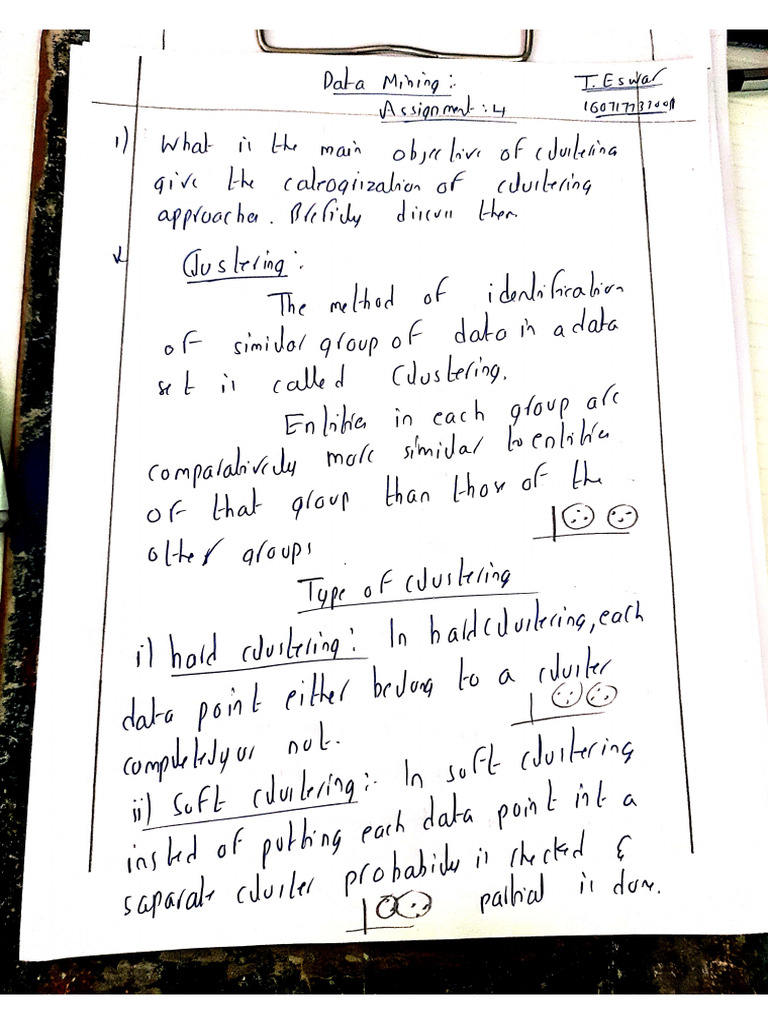 Data Mining:
T. Eswar
Assignment: 4
1) What is the main objective of clustering
give the categorization of clustering
approaches. Briefidy discuss them
Clustering:
The method of identification
of similar group of data in a data
set is called Clustering.
Entities in each group are
comparatively more similar to entities
of that group than those of the
other groups
Type of clustering
i) hard clustering: In hard clustering, each
data point either belong to a cluster
completely or not.
ii) Soft clustering:- In soft clustering
insted of putting each data point int a
saparate cluster probability is checked &
partial is done.